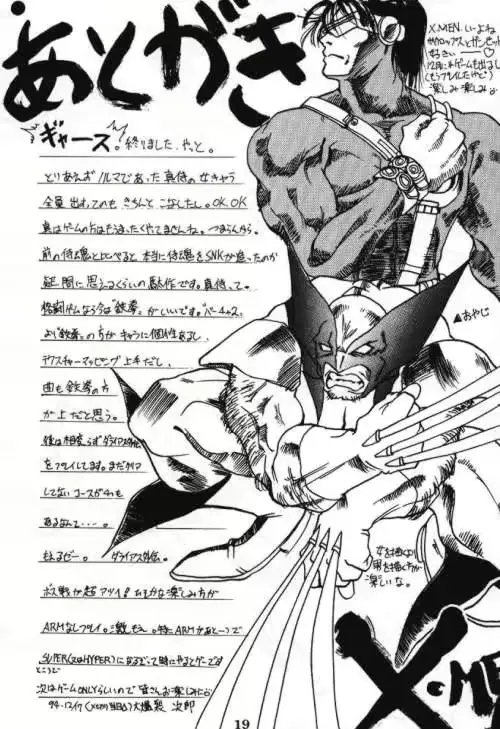 あとがき
X-MEN いいよね
サイクロップスとガンビットが
好きいー♡
12月にはゲームも出るし
(もうプレイしたけど)
楽しみ楽しみ。
ギャース。終りました、やっと。
とりあえずノルマであった真侍の女キャラ
全員出すってのもきちんとこなしたし。OK.OK
真はゲームの方はもうまったくやてませんね。つまらんから。
前の侍魂と比べると、本当に侍魂をSNKが造ったのか
疑問に思えるくらいの駄作です。真侍って。
格闘ゲームなら今は"鉄拳"がいいです。"バーチャ2"
より"鉄拳"の方がキャラに個性あるし、
テクスチャーマッピング上手だし、
曲も鉄拳の方
が上だと思う。
後は相変らずダライアス外伝
をプレイしてます。まだクリア
してないコースが4つも
あるなんて・・・・。
もえるぜー。ダライアス外伝。
ボス戦が超アツイ!
ARMなしプレイ。
SUPER(又はHYPER)
ところで
次はゲームONLYらしいので皆さんお楽しみに
94.12/7 大爆発 次郎
▲おやじ
女を描くより
男を描く方が
楽しいな。
X-ME
19